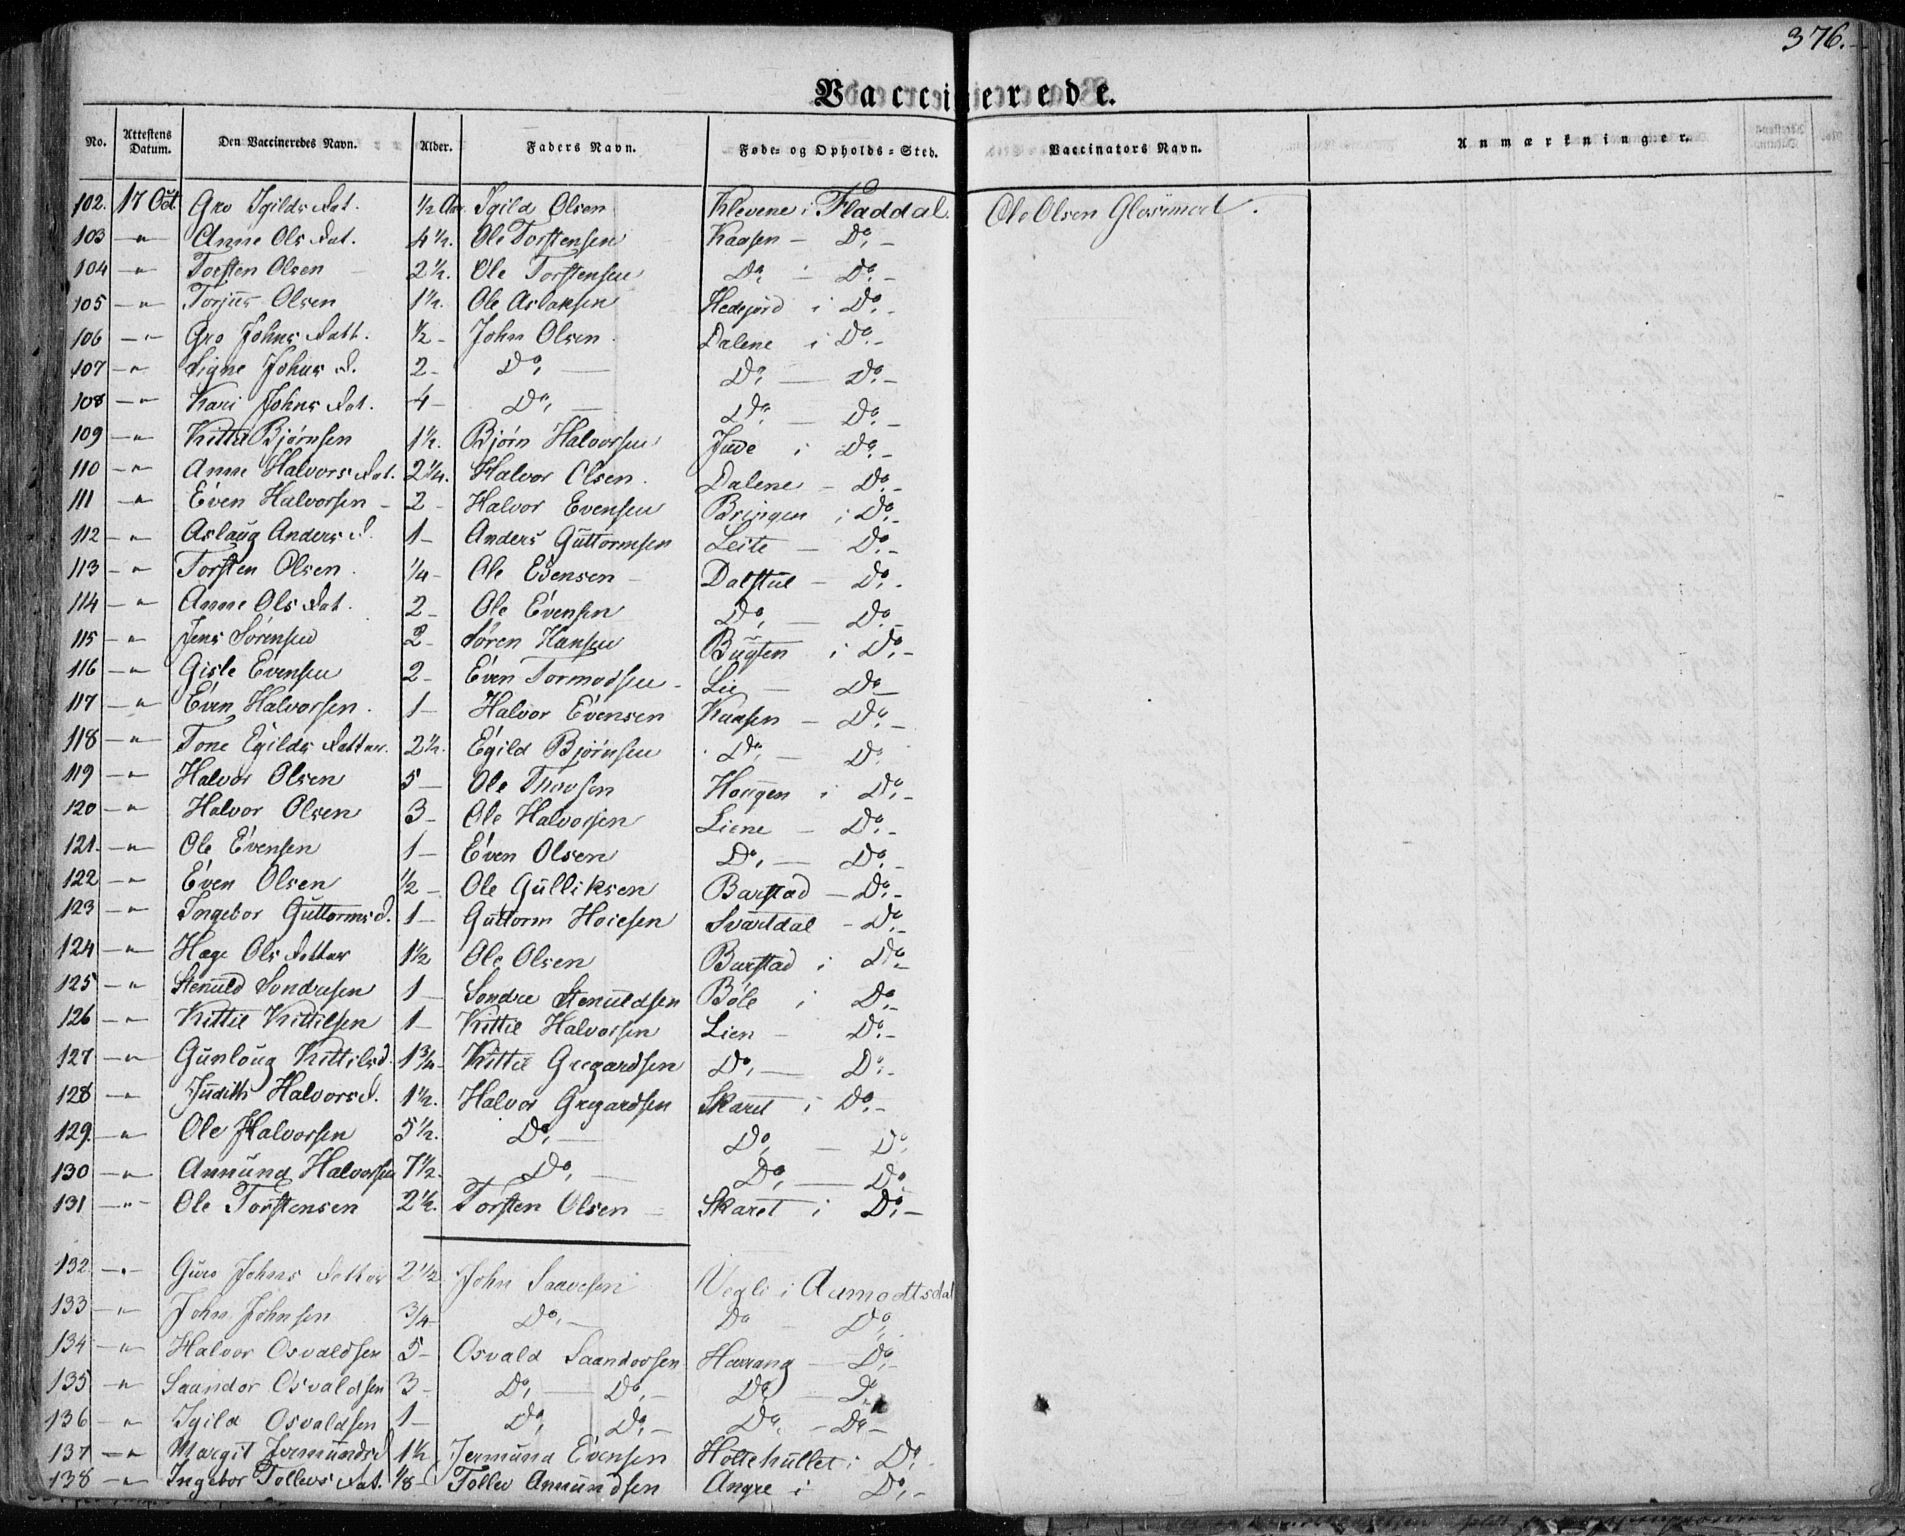 376.
Vaccinerede.
No. Attestens Datum. Den Vaccineredes Navn. Alder. Faders Navn. Føde- og Opholds-Sted. Vaccinators Navn. Anmærkninger.
102. 17 Oct Gro Igilds Dat. 1/2 Aar Igild Olsen Klevene i Fladdal. Ole Olsen
103 " Anne Ols Dat. 4 1/2. Ole Torstensen Kaasen - Do. -
104 " Torsten Olsen 2 1/2. Ole Torstensen Do. i Do. -
105 " Torjus Olsen 1 1/2. Ole Aslaksen Hedejord i Do. -
106 " Gro Johns Datt. 1/2 - John Olsen Dalene i Do. -
107 " Signe Johns d. 2 - Do. Do. - Do. -
108 " Kari Johns Dat. 4 - Do. - Do. - Do. -
109 " Kittil Bjørnsen 1 1/2. Bjørn Halvorsen Juve i Do. -
110 " Anne Halvors Dat. 2 1/4. Halvor Olsen. Dalene - Do. -
111 " Even Halvorsen - 2 - Halvor Evensen Bringen i Do. -
112 " Aslaug Anders d. 1 - Anders Guttormsen Leite - Do. -
113 " Torsten Olsen. 1/4 - Ole Evensen - Dalstul - Do. -
114 " Anne Ols Dat. 2 - Ole Evensen Do. - Do. -
115 " Jens Sørensen 2 - Søren Hansen Bugten i Do. -
116 " Gisle Evensen 2 - Even Tormodsen - Lie - Do. -
117 " Even Halvorsen. 1 - Halvor Evensen Kaasen - Do. -
118 " Tone Egilds Datter. 2 1/2. Egild Bjørnsen Do. - Do.
119 " Halvor Olsen 5 - Ole Thovsen Hougen i Do. -
120 " Halvor Olsen 3 - Ole Halvorsen Liene - Do. -
121 " Ole Evensen 1 - Even Olsen Do. - Do. -
122 " Even Olsen 1/2 - Ole Gulliksen Barstad - Do. -
123 " Ingebor Guttormsd. 1 - Guttorm Hoiesen Svartdal - Do. -
124 " Hage Ols Datter 1 1/2 Ole Olsen Barstad i Do. -
125 " Stenuld Sondresen 1 - Sondre Stenuldsen Bøle i Do. -
126 " Kittil Kittilsen 1 - Kittil Halvorsen Lien - Do. -
127 " Gunloug Kittilsd. 1 3/4 - Kittil Gregardsen Do. - Do. -
128 " Judith Halvorsd. 1 1/2. Halvor Gregardsen Skaret i Do. -
129. " Ole Halvorsen 5 1/2. Do. - Do. - Do.
130 " Amund Halvorsen 7 1/2. Do. - Do. - Do.
131 " Ole Torstensen 2 1/2. Torsten Olsen - Skaret i Do. -
132 " Guro Johns Datter 2 1/2 John Saavesen Vegli i Aamodtsdal
133 " John Johnsen 3/4 - Do. - Do - Do.
134 " Halvor Osvaldsen 5 - Osvald Saandorsen Harrang - Do. -
135 " Saandor Osvaldsen 3 - Do. - Do. - Do. - D.
136 " Igild Osvaldsen 1 - Do. Do. - Do. - Do. -
137 " Margit Jermundsd 1 1/2 Jermund Evensen Holtehullet i Do.
138 " Ingebor Tollevs Dat. 1/8 - Tollev Amundsen Angre i Do. -